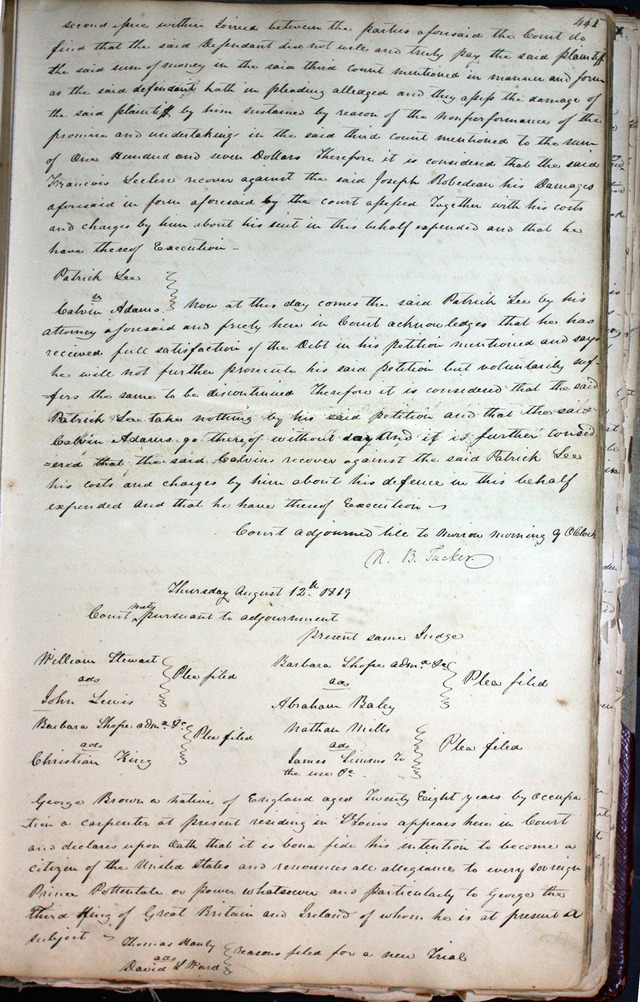 441
second issue within Joined between the parties aforesaid the Court do
find that the said Defendant did not well and truly pay the said plaintiff
the said sum of money in the said third count mentioned in manner and form
as the said defendant hath in pleading alledged and they assess the damage of
the said plaintiff by him sustained by reason of the Nonperformance of the
promise and undertaking in the said third count mentioned to the sum
of One Hundred and seven Dollars Therefore it is considered that the said
Francois Leclerc recover against the said Joseph Robedeau his Damages
aforesaid in form aforesaid by the court assessed Together with his costs
and charges by him about his suit in this behalf expended and that he
have thereof Execution —
Patrick Lee
vs
Calvin Adams } Now at this day comes the said Patrick Lee by his
attorney aforesaid and freely here in Court acknowledges that he has
received full satisfaction of the Debt in his petition mentioned and says
he will not further prosecute his said petition but voluntarily suf
fers the same to be discontinued Therefore it is considered that the said
Patrick Lee take nothing by his said petition and that the said
Calvin Adams go thereof without day And it is further consid
=ered that the said Calvin recover against the said Patrick Lee
his costs and charges by him about his defence in this behalf
expended and that he have thereof Execution
Court adjourned till to Morrow morning 9 OClock
N. B. Tucker
Thursday August 12th 1819
Court met pursuant to adjournment
Present same Judge
William Stewart
ads
John Lewis } Plea filed
Barbara Shope adm.x &c
ads
Abraham Baley } Plea filed
Barbara Shope adm.x &c
ads
Christian King } Plea filed
Nathan Mills
ads
James Simms To
the use &c } Plea filed
George Brown a native of England aged Twenty Eight years by occupa
tion a carpenter at present residing in St Louis appears here in Court
and declares upon Oath that it is bona fide his intention to become a
citizen of the United States and renounces all allegiance to every sovereign
Prince Pottentate or power whatsoever and particularly to George the
Third King of Great Britain and Ireland of whom he is at present a
subject
Thomas Hanly
ads
David L Ward } reasons filed for a new Trial